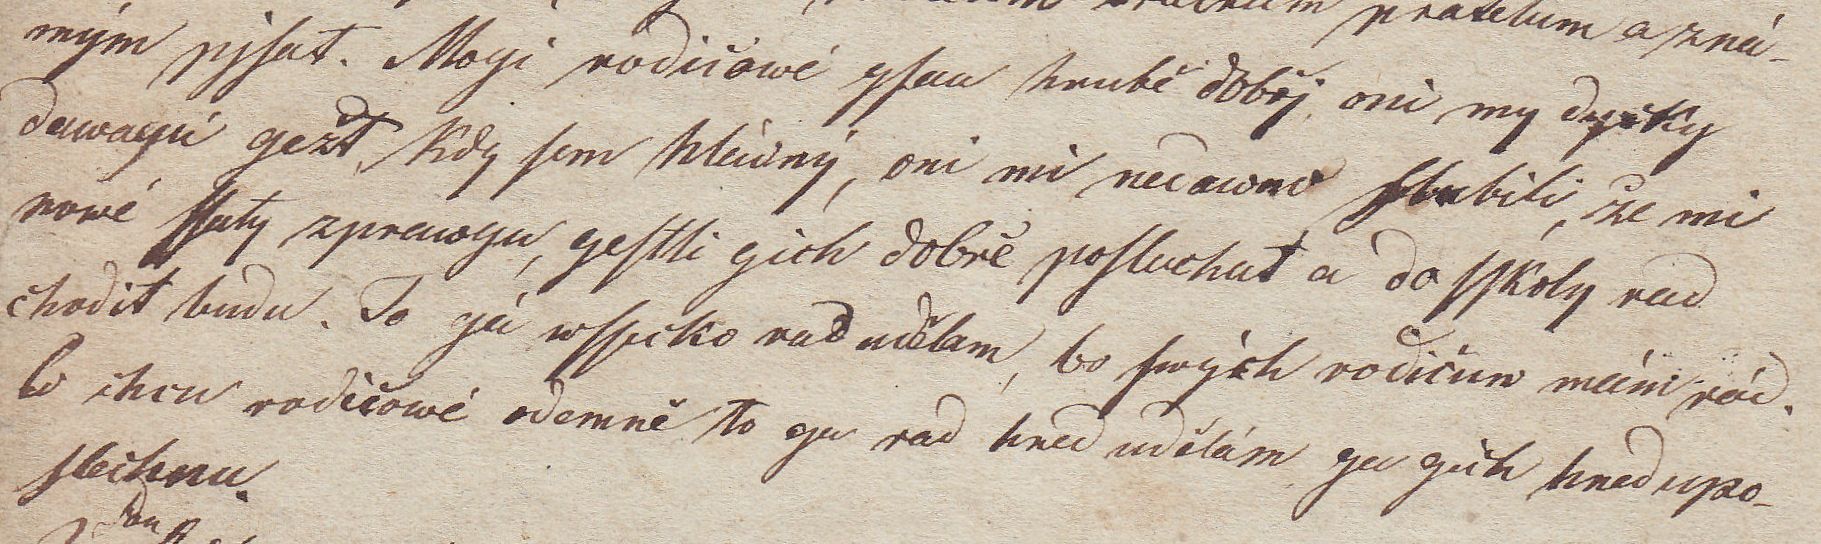 pratelum a zná-
mým pjsat. Mogi rodičowé gsau hrubě dobřj, oni my dycky
dawagú gezt, kdy sem hládný, oni mi nedawno slubili, že mi
nowé ssaty zprawgu, gestli gich dobře posluchat a do sskoly rad
chodit budu. To gá wssecko rad udělam, bo swých rodičuw mám rád.
Co chcu rodičowé odemně to ga rad hned udělám ga gich hned upo-
slechnu.